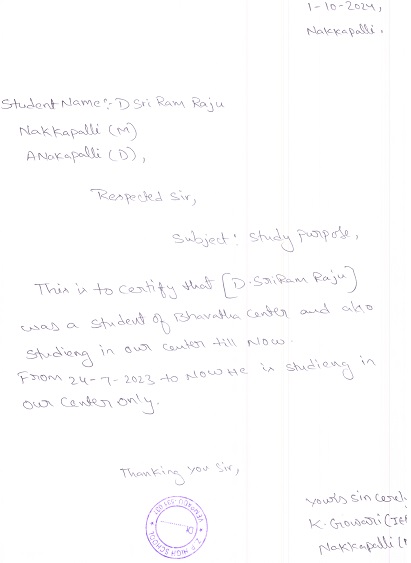 1-10-2024,
Nakkapalli.
Student Name:- D Sri Ram Raju
Nakkapalli (M)
Anakapalli (D),
Respected Sir,
Subject: study purpose,
This is to certify that [D.SriRam Raju]
was a student of Bharatha Center and also
studieng in our center till Now.
From 24-7-2023 to Now He is studieng in
our center only.
Thanking you Sir,
yours sincerel
K. Gowari
Nakkapalli (
Z.P. HIGH SCHOOL